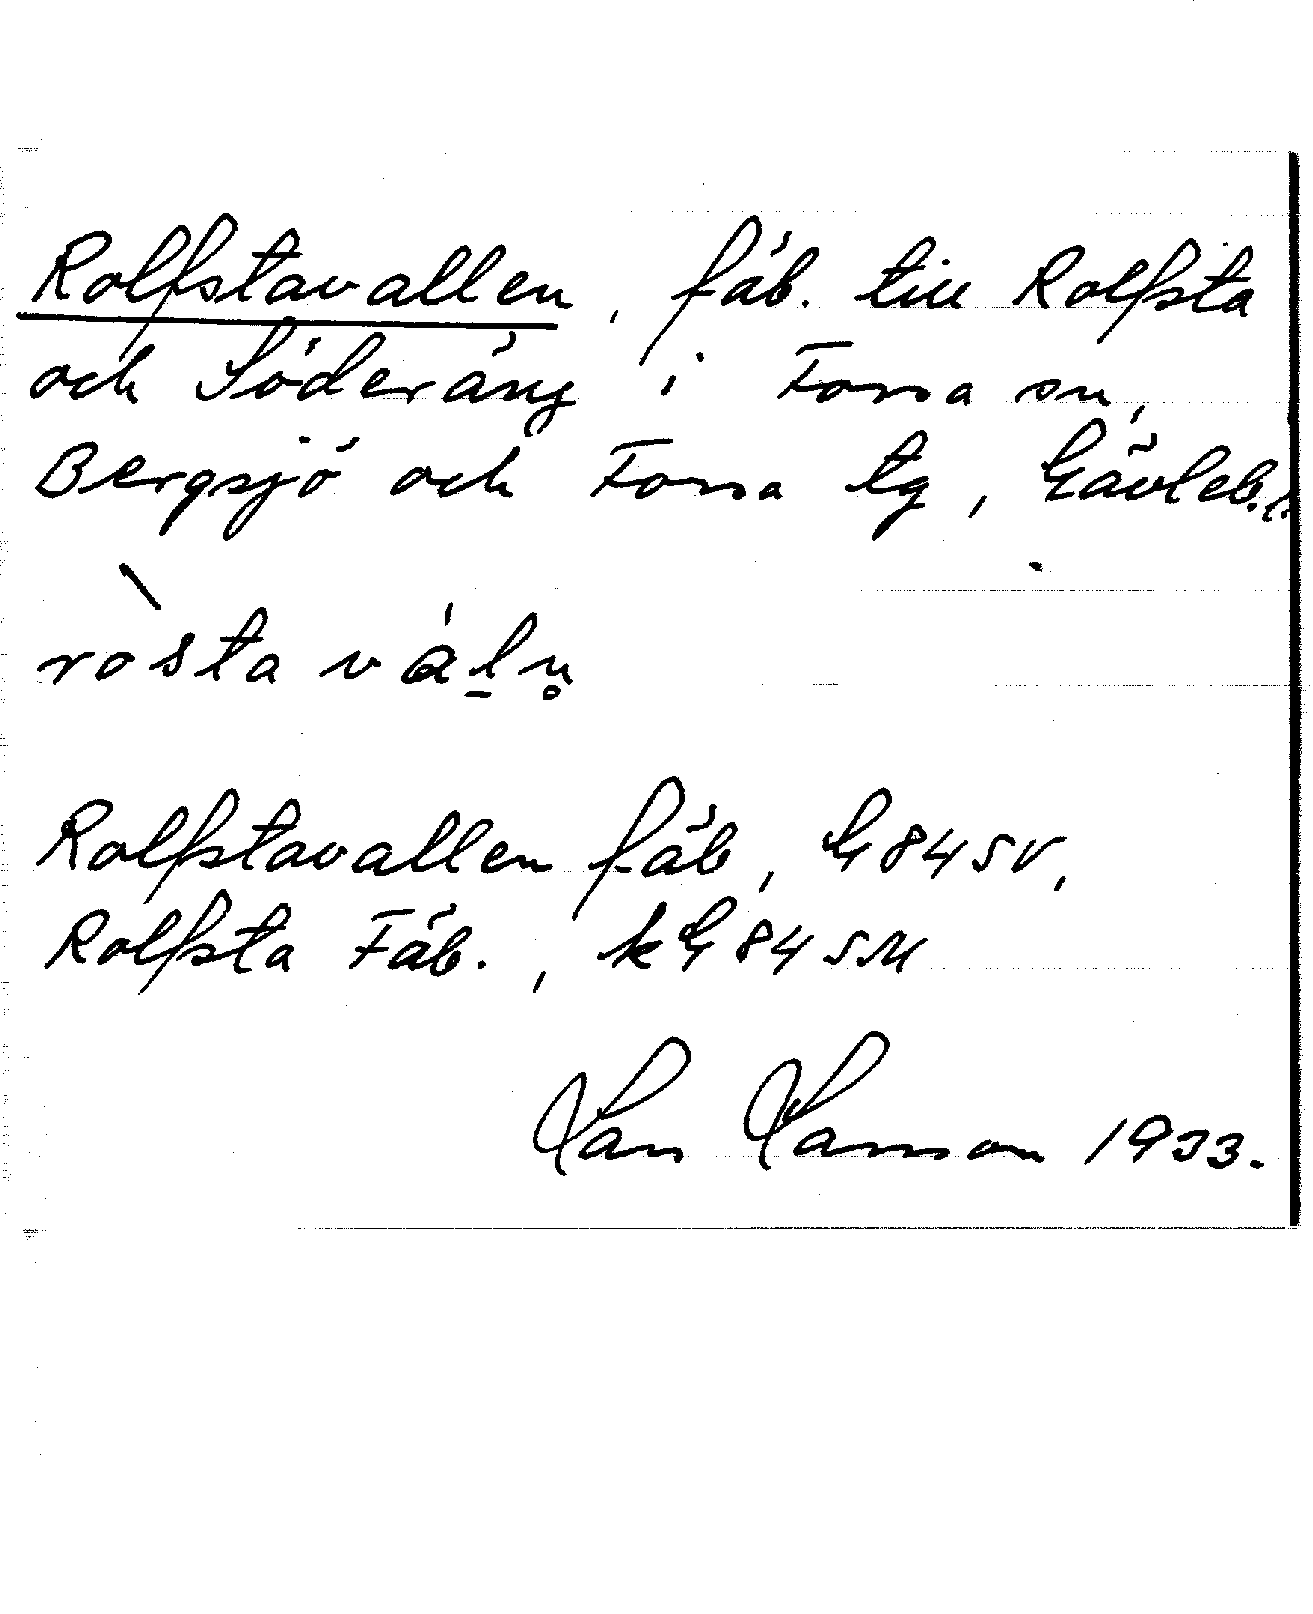 Rolfstavallen, fäb. till Rolfsta
och Söderäng i Forssa sn,
Bergsjö och Forssa tg, Gävleb.l.
ròsta váḻn̥
Rolfstavallen fäb, G 84 SV,
Rolfsta Fäb., kG 84 SM
Lars Larsson 1933.